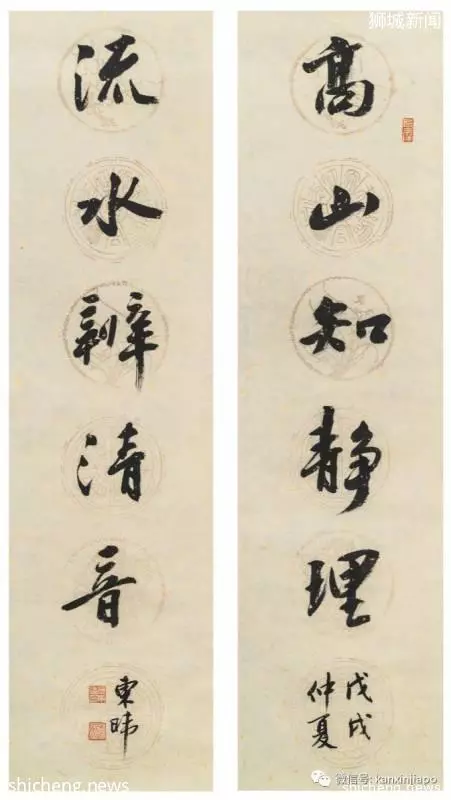 狮城新闻
高山知静理
戊戌
仲夏
流水辨清音
東暐
微信号: kanxinjiapo
shicheng.news
shicheng.news